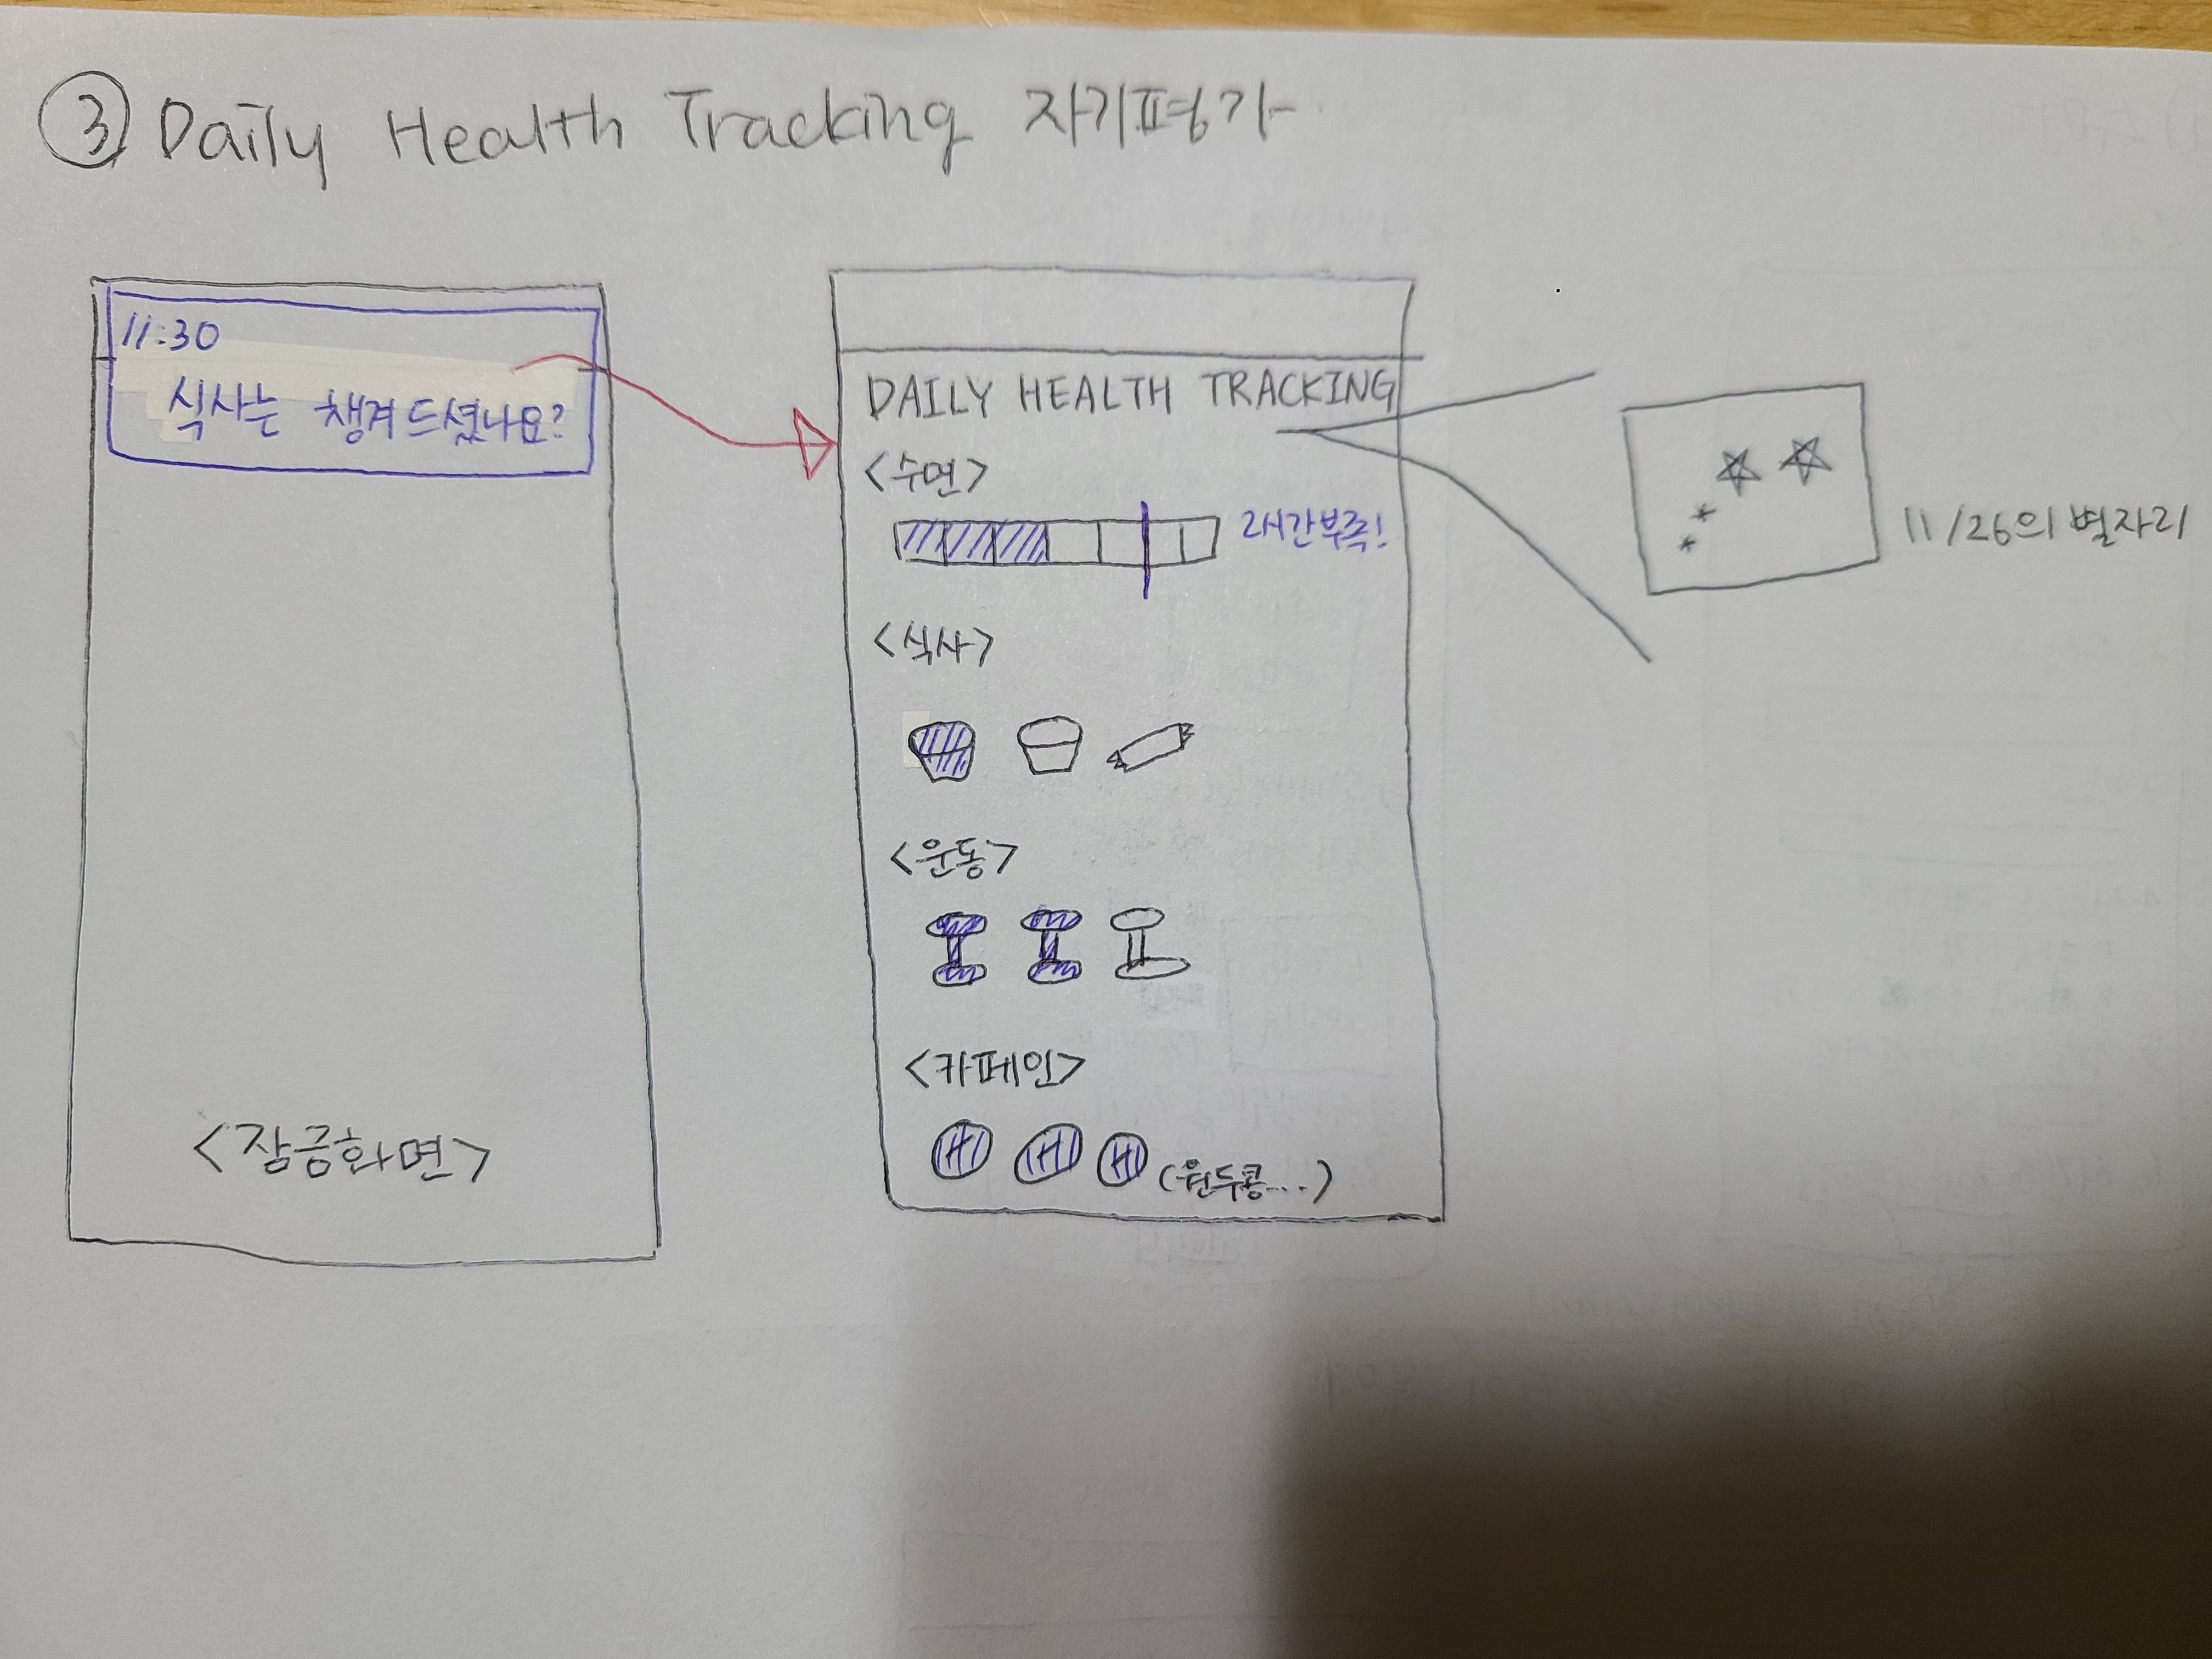 ③ Daily Health Tracking 자기평가
11:30
식사는 챙겨드셨나요?
<잠금화면>
DAILY HEALTH TRACKING
<수면>
2시간부족!
<식사>
<운동>
<카페인>
(원두콩...)
11/26의 별자리